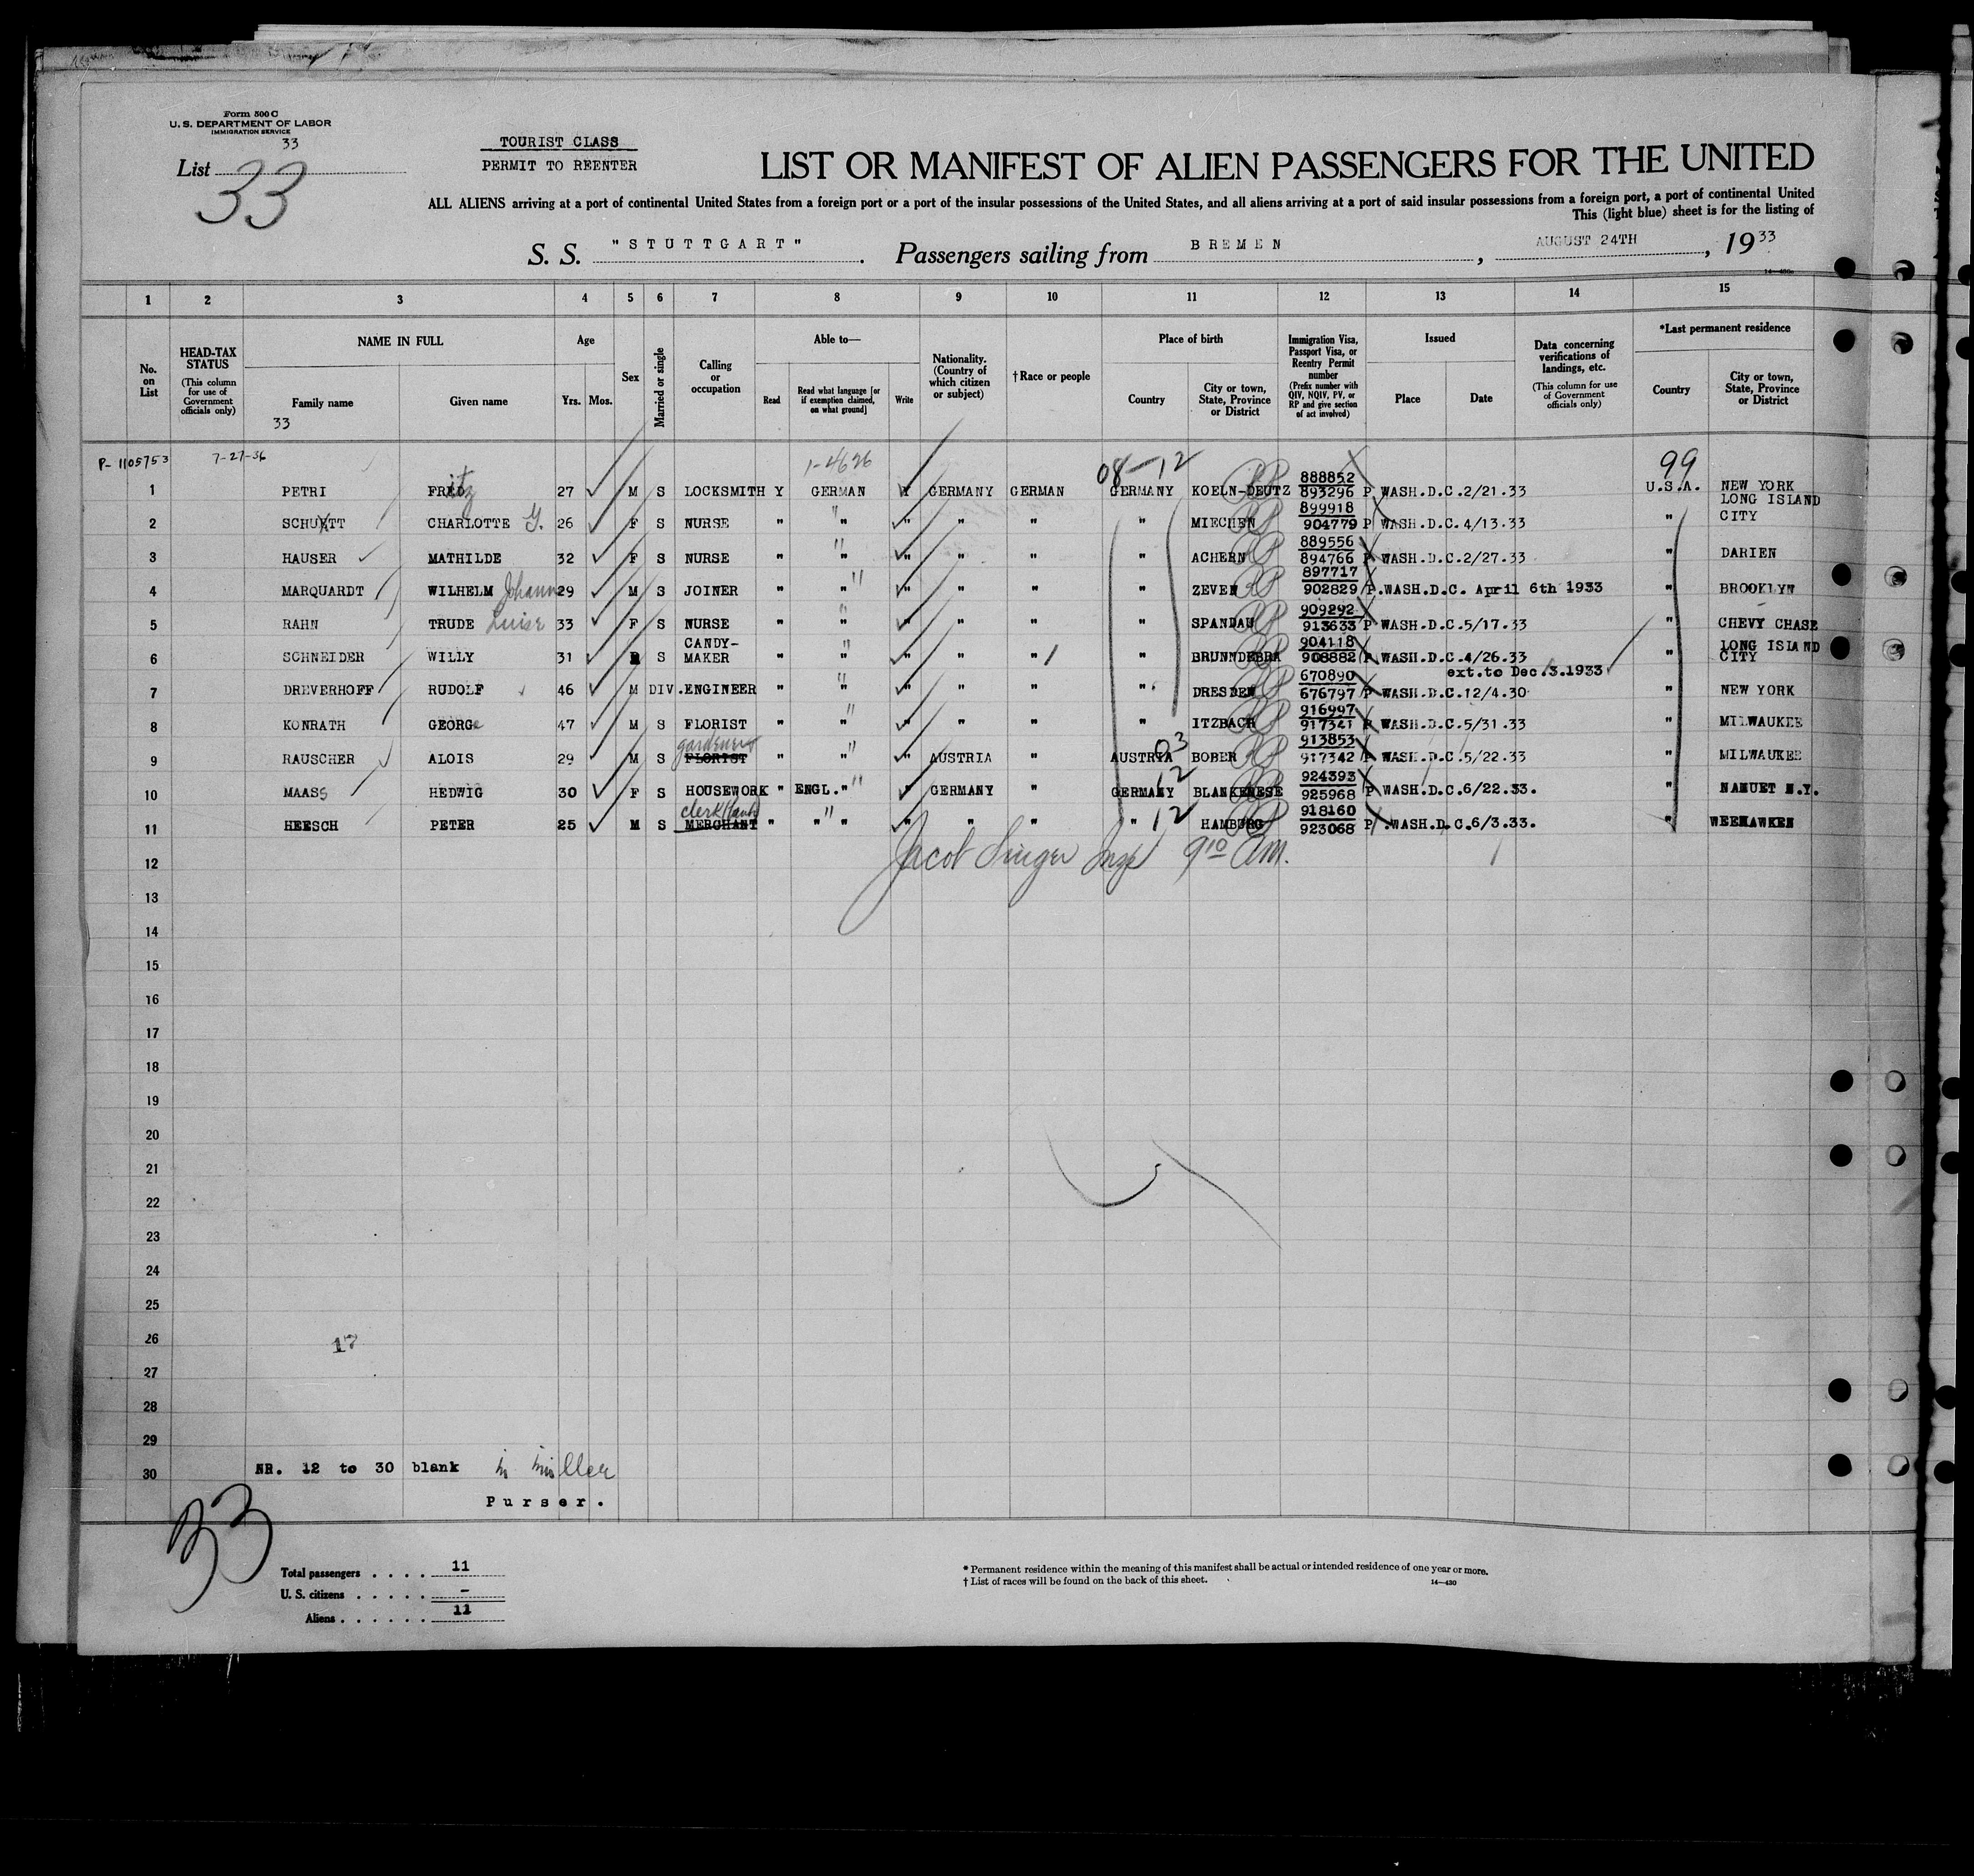 Form 500 C
U. S. DEPARTMENT OF LABOR
IMMIGRATION SERVICE
33
List
33
TOURIST CLASS
PERMIT TO REENTER
LIST OR MANIFEST OF ALIEN PASSENGERS FOR THE UNITED
ALL ALIENS arriving at a port of continental United States from a foreign port or a port of the insular possessions of the United States, and all aliens arriving at a port of said insular possessions from a foreign port, a port of continental United
This (light blue) sheet is for the listing of
S. S. "STUTTGART". Passengers sailing from BREMEN, AUGUST 24TH, 1933
1 2 3 4 5 6 7 8 9 10 11 12 13 14 15
No. on List
HEAD-TAX STATUS (This column for use of Government officials only)
NAME IN FULL
Family name
Given name
33
Age
Yrs. Mos.
Sex
Married or single
Calling or occupation
Able to—
Read
Read what language [or if exemption claimed, on what ground]
Write
Nationality. (Country of which citizen or subject)
†Race or people
Place of birth
Country
City or town, State, Province or District
Immigration Visa, Passport Visa, or Reentry Permit number (Prefix number with QIV, NQIV, PV, or RP and give section of act involved)
Issued
Place
Date
Data concerning verifications of landings, etc. (This column for use of Government officials only)
*Last permanent residence
Country
City or town, State, Province or District
P-1105753 7-27-36 1-4626 08-12 99
1 PETRI FRED itz 27 M S LOCKSMITH Y GERMAN Y GERMANY GERMAN GERMANY KOELN-DEUTZ 888852 893296 P WASH.D.C. 2/21.33 U.S.A. NEW YORK
2 SCHUXTT CHARLOTTE G. 26 F S NURSE " " " " " " MIECHEN 899918 904779 P WASH.D.C. 4/13.33 " LONG ISLAND CITY
3 HAUSER MATHILDE 32 F S NURSE " " " " " " ACHERN 889556 894766 P WASH.D.C. 2/27.33 " DARIEN
4 MARQUARDT WILHELM Johann 29 M S JOINER " " " " " " ZEVEN 897717 902829 P.WASH.D.C. April 6th 1933 " BROOKLYN
5 RAHN TRUDE Luise 33 F S NURSE " " " " " " SPANDAU 909292 913633 P WASH.D.C. 5/17.33 " CHEVY CHASE
6 SCHNEIDER WILLY 31 S CANDY-MAKER " " " " " " BRUNNDEBRA 904118 908882 P WASH.D.C. 4/26.33 " LONG ISLAND CITY
ext.to Dec.3.1933
7 DREVERHOFF RUDOLF 46 M DIV. ENGINEER " " " " " " DRESDEN 670890 676797 P WASH.D.C. 12/4.30 " NEW YORK
8 KONRATH GEORG e 47 M S FLORIST " " " " " " ITZBACH 916997 917341 P WASH.D.C. 5/31.33 " MILWAUKEE
gardener 03
9 RAUSCHER ALOIS 29 M S FLORIST " " " AUSTRIA " AUSTRIA BOBER 913853 917342 P WASH.D.C. 5/22.33 " MILWAUKEE
12
10 MAASS HEDWIG 30 F S HOUSEWORK " ENGL." " GERMANY " GERMANY BLANKENESE 924393 925968 P WASH.D.C. 6/22.33. " NANUET N.Y.
clerk 12
11 HEESCH PETER 25 M S MERCHANT " " " " " " " HAMBURG 918160 923068 P .WASH.D.C. 6/3.33. " WEEHAWKEN
12 Jacob Singer Insp 9 10 AM.
13
14
15
16
17
18
19
20
21
22
23
24
25
26 17
27
28
29
30 NR. 12 to 30 blank
Purser.
33
Total passengers . . . . 11
U. S. citizens . . . . . –
Aliens . . . . . . 11
* Permanent residence within the meaning of this manifest shall be actual or intended residence of one year or more.
† List of races will be found on the back of this sheet.
14—430